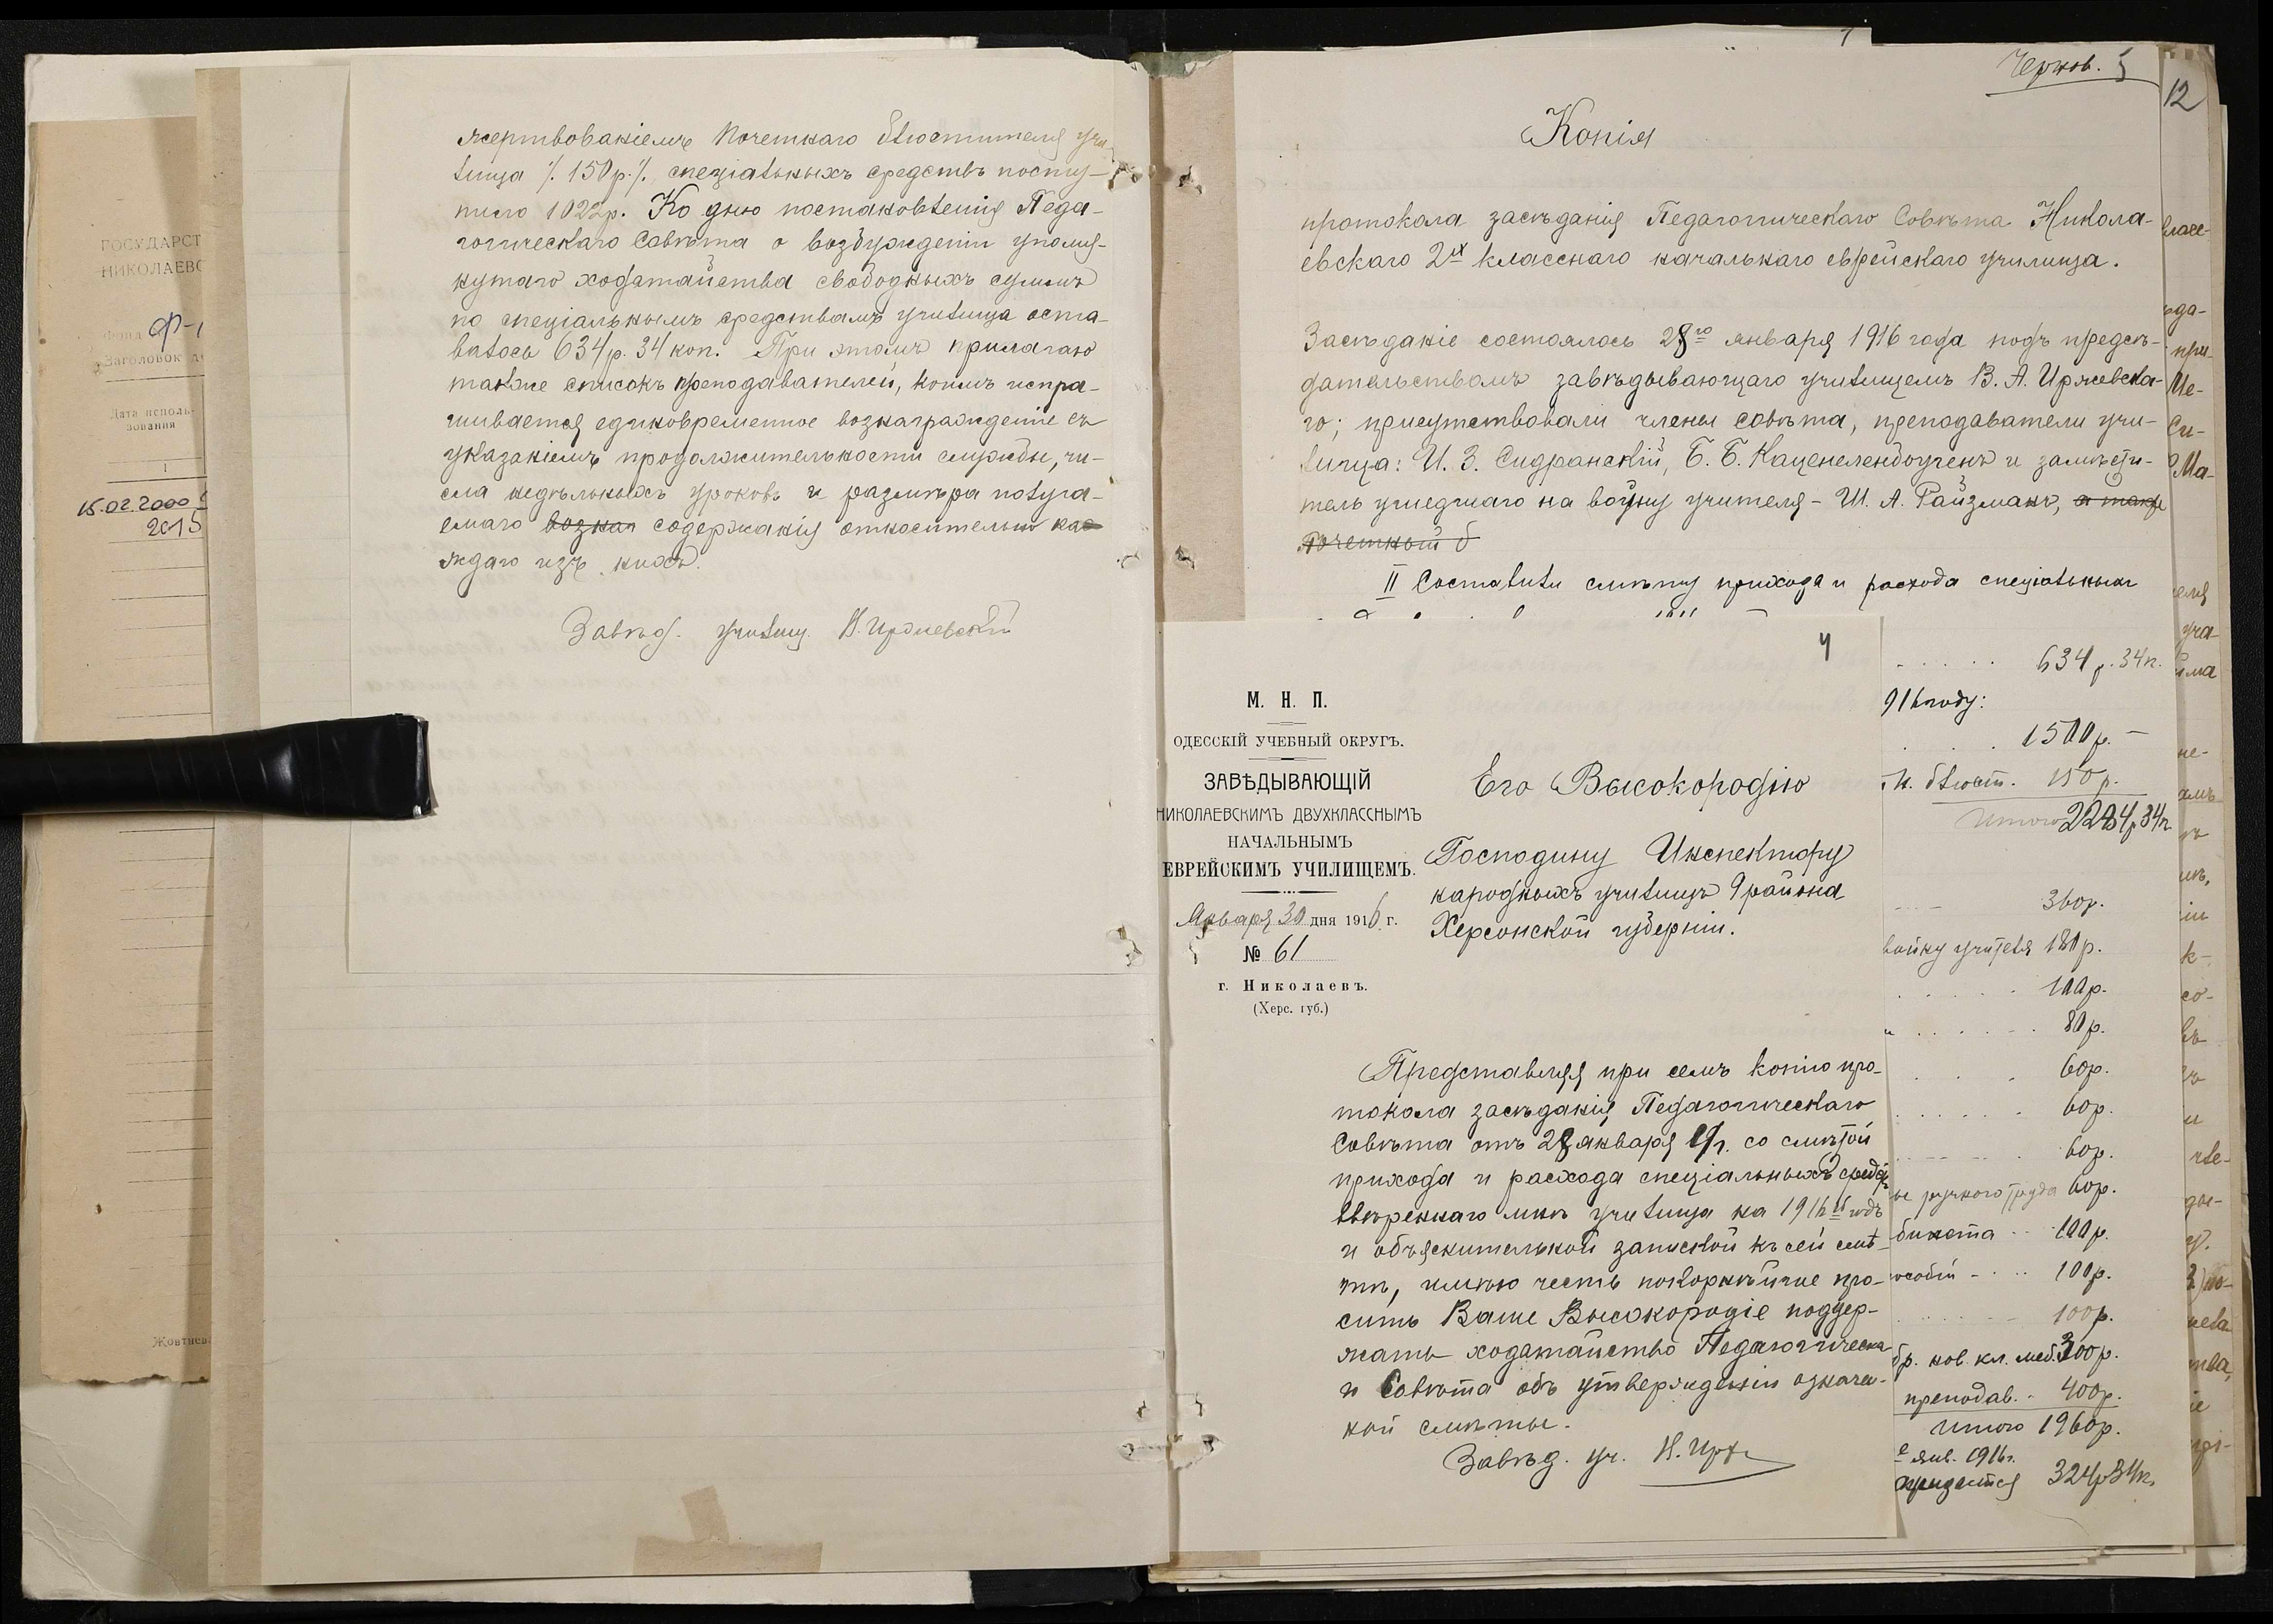 жертвованіемъ Почетнаго Блюстителя учи-
лища /. 150 р. /. спеціальныхъ средствъ посту-
пило 1022 р. Ко дню постановленія Педа-
гогическаго Совѣта о возбужденіи упомя-
нутаго ходатайства свободныхъ суммъ
по спеціальнымъ средствамъ училища оста-
валось 634 р. 34 коп. При этомъ прилагаю
также списокъ преподавателей, коимъ испра-
шивается единовременное вознагражденіе съ
указаніемъ продолжительности службы, чи-
сла недѣльныхъ уроковъ и размѣра получа-
емаго возна содержанія относительно ка
ждаго изъ нихъ.
Завѣд. училищ.
ГОСУДАРСТ
НИКОЛАЕВС
Фонд Ф-1
Заголовок д
Дата исполь-
зования
1
15.02.2000
2015
Жовтнев
Чернов. 5
12
Копія
протокола засѣданія Педагогическаго Совѣта Никола-
евскаго 2х классного начальнаго еврейскаго училища.
Засѣданіе состоялось 28го января 1916 года подъ предсѣ-
дательствомъ завѣдывающаго училищемъ В. А. Иржевска-
го; присутствовали члены совѣта, преподаватели учи-
лища: И. З. Сидранскій, Б. Б. Каценелендоученъ и замѣсти-
тель ушедшаго на войну учителя - Ш. А. Райзманъ, а также
почетный б
II Составили смѣту прихода и расхода спеціальныхъ
4
М. Н. П.
ОДЕССКІЙ УЧЕБНЫЙ ОКРУГЪ.
ЗАВѢДЫВАЮЩІЙ
НИКОЛАЕВСКИМЪ ДВУХКЛАССНЫМЪ
НАЧАЛЬНЫМЪ
ЕВРЕЙСКИМЪ УЧИЛИЩЕМЪ.
Января 30 дня 1916 г.
№ 61
г. Николаевъ.
(Херс. губ.)
Его Высокородію
Господину Инспектору
народныхъ училищъ 9 района
Херсонской губерніи.
Представляя при семъ копію про-
токола засѣданія Педагогическаго
Совѣта отъ 28 января с/г. со смѣтой
прихода и расхода спеціальныхъ средствъ
ввѣреннаго мнѣ училища на 1916 й годъ
и объяснительной запиской къ сей смѣ-
тѣ, имѣю честь покорнѣйше про-
сить Ваше Высокородіе поддер-
жать ходатайство Педагогическа-
го Совѣта объ утвержденіи означен-
ной смѣты.
Завѣд. уч.
634 р. 34 к.
916 году:
1500 р. –
п. блюст. 150 р.
Итого 2284 р. 34 к.
360 р.
войну учителя 180 р.
100 р.
80 р.
60 р.
60 р.
60 р.
ручного труда 60 р.
бинета 100 р.
особій 100 р.
100 р.
бр. нов. кл. меб. 300 р.
преподав. 400 р.
Итого 1960 р.
янв. 1916 г.
324 р 34 к.